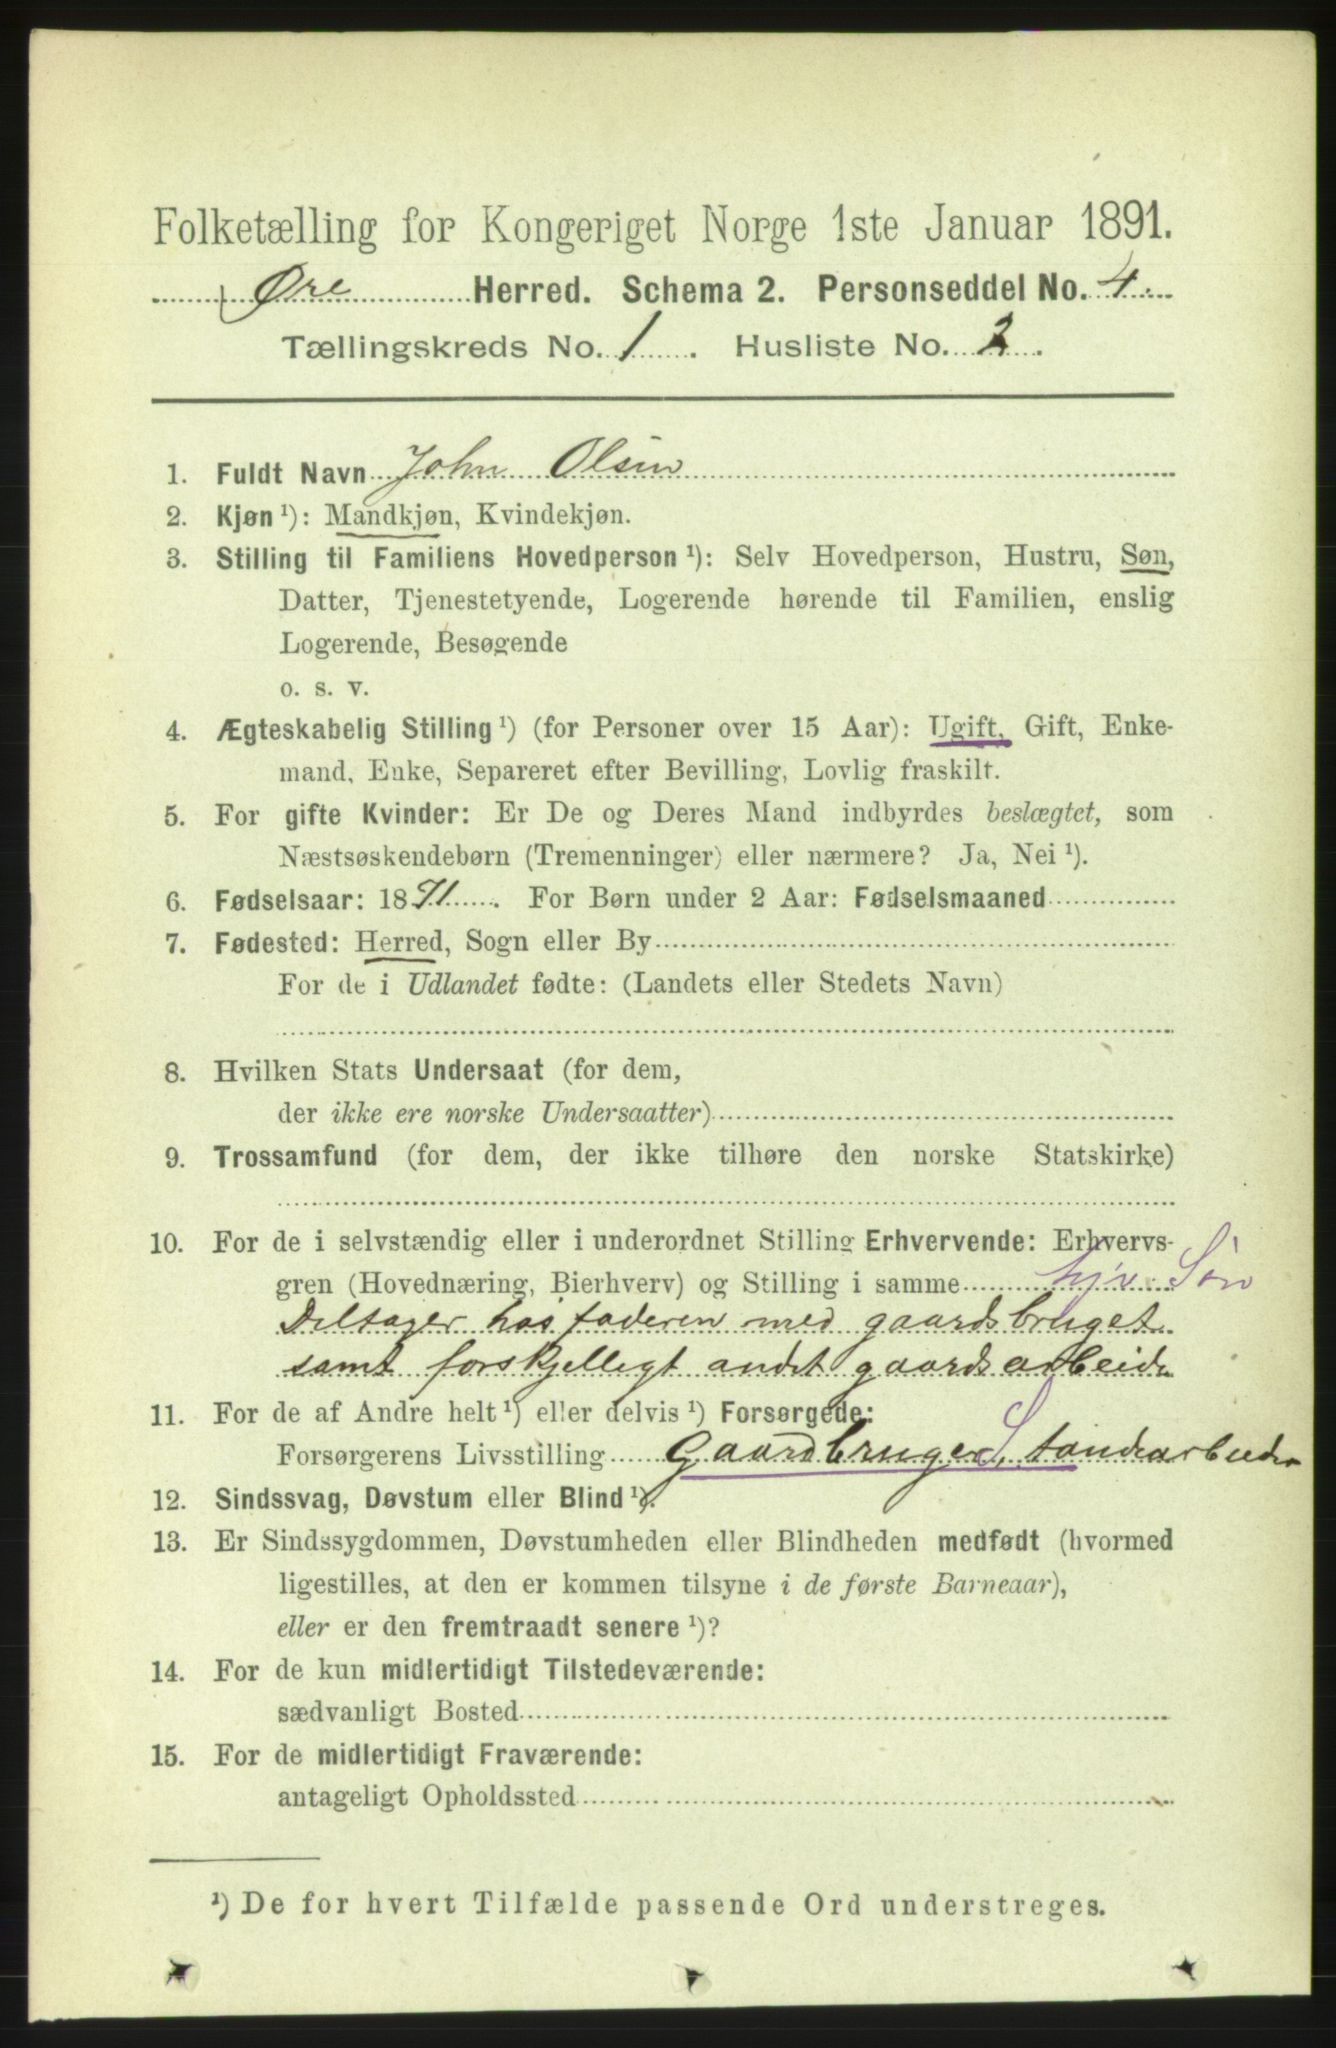 Folketælling for Kongeriget Norge 1ste Januar 1891.
Øre Herred. Schema 2. Personseddel No. 4.
Tællingskreds No. 1. Husliste No. 2.
1. Fuldt Navn John Olsen
2. Kjøn ¹): Mandkjøn, Kvindekjøn.
3. Stilling til Familiens Hovedperson ¹): Selv Hovedperson, Hustru, Søn,
Datter, Tjenestetyende, Logerende hørende til Familien, enslig
Logerende, Besøgende
o. s. v.
4. Ægteskabelig Stilling ¹) (for Personer over 15 Aar): Ugift, Gift, Enke-
mand, Enke, Separeret efter Bevilling, Lovlig fraskilt.
5. For gifte Kvinder: Er De og Deres Mand indbyrdes beslægtet, som
Næstsøskendebørn (Tremenninger) eller nærmere? Ja, Nei ¹).
6. Fødselsaar: 1871. For Børn under 2 Aar: Fødselsmaaned
7. Fødested: Herred, Sogn eller By
For de i Udlandet fødte: (Landets eller Stedets Navn)
8. Hvilken Stats Undersaat (for dem,
der ikke ere norske Undersaatter)
9. Trossamfund (for dem, der ikke tilhøre den norske Statskirke)
10. For de i selvstændig eller i underordnet Stilling Erhvervende: Erhvervs-
gren (Hovednæring, Bierhverv) og Stilling i samme hjv. Søn
Deltager hos faderen med gaardsbruget
samt forskjelligt andet gaardsarbeide
11. For de af Andre helt ¹) eller delvis ¹) Forsørgede:
Forsørgerens Livsstilling Gaardbruger S
12. Sindssvag, Døvstum eller Blind ¹).
13. Er Sindssygdommen, Døvstumheden eller Blindheden medfødt (hvormed
ligestilles, at den er kommen tilsyne i de første Barneaar),
eller er den fremtraadt senere ¹)?
14. For de kun midlertidigt Tilstedeværende:
sædvanligt Bosted
15. For de midlertidigt Fraværende:
antageligt Opholdssted
¹) De for hvert Tilfælde passende Ord understreges.